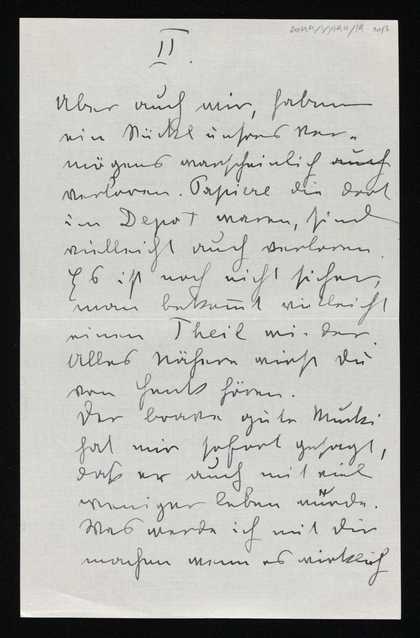 II.
Aber auch wir, haben
ein Stückl unsres Ver-
mögens warscheinlich auch
verloren. Papiere die dort
im Depot waren, sind
vielleicht auch verloren.
Es ist noch nicht sicher,
man bekommt vielleicht
einen Theil wieder.
Alles Nähere wirst du
von hören.
Der brave gute Mucki
hat mir sofort gesagt,
daß er auch mit viel
weniger leben würde.
Was werde ich mit dir
machen wenn es wirklich